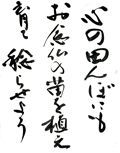 心の田んぼにも
お念仏の苗を植え
育て稔らせよう